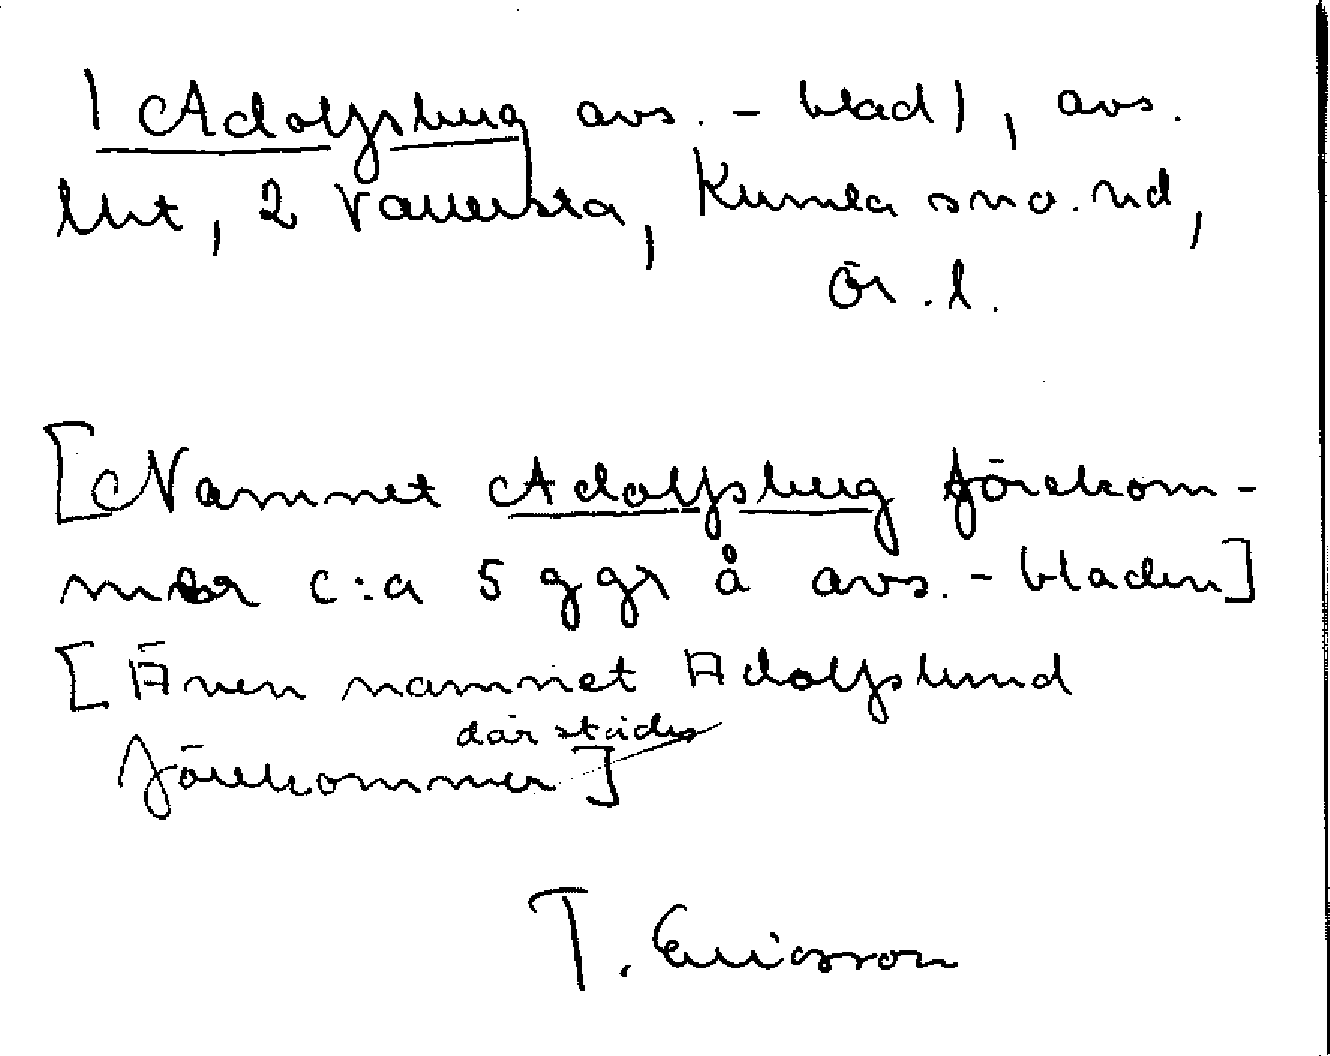 (Adolfsberg avs.-blad), avs.
lht, 2 Vallersta, Kumla sno. nd,
Ör. l.
[Namnet Adolfsberg förekom-
mer c:a 5 ggr å avs.-bladen]
[Även namnet Adolfslund
där städes
förekommer]
T. Ericsson